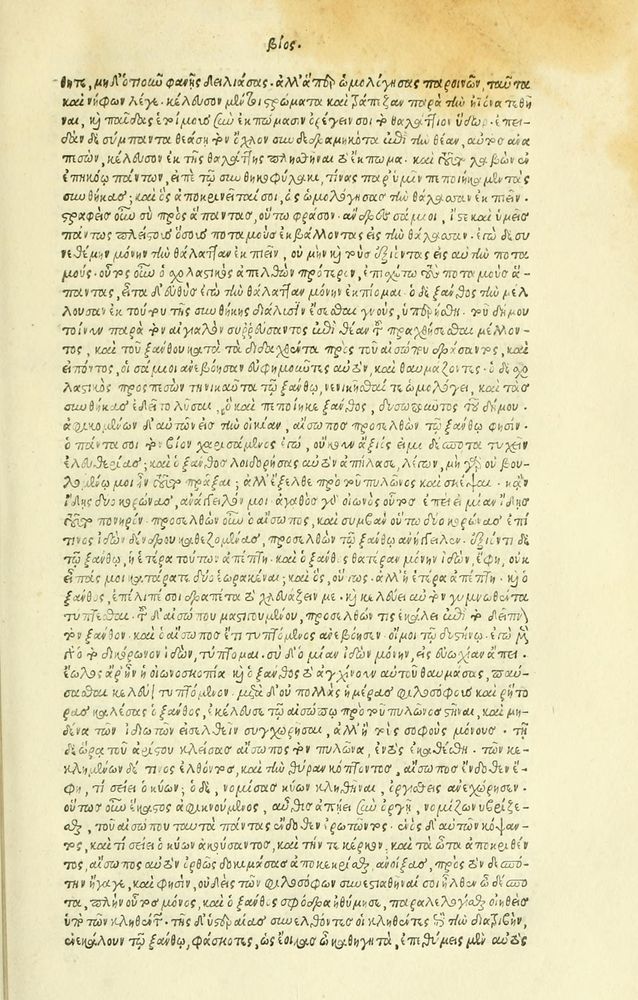 βίος.
θητε, μηδ' ὁπωσοῦν φανῇς δειλιάσας. ἀλλ' ἅπερ ὡμολόγησας παροινῶν, ταῦτα
καὶ νήφων λέγε. κέλευσον μὲν οὖν στρώματα καὶ τράπεζαν παρὰ τὴν ἠϊόνα τεθῆ
ναι, καὶ παῖδας ἑτοίμους ἐν ἐκπώματι ὀρέγειν σοι τὸ θαλάττιον ὕδωρ. ἐπει-
δὰν δὲ σύμπαντα θεάσῃ τὸν ὄχλον συνδεδραμηκότα ἐπὶ τὴν θέαν, αὐτὸς ἀνα
πεσὼν, κέλευσον ἐκ τῆς θαλάττης πλησθῆναι τὸ ἔκπωμα. καὶ τοῦτο λαβὼν
ἐπηκόῳ πάντων, εἰπὲ τῷ συνθηκοφύλακι, τίνας παρ' ὑμῖν πεποίημαι τὰς
συνθήκας; καὶ ὃς ἀποκρινεῖταί σοι, ὡς ὡμολόγησας τὴν θάλασσαν ἐκπιεῖν.
στραφεὶς οὖν σὺ πρὸς ἅπαντας, οὕτω φράσον. ἄνδρες σάμιοι, ἴστε καὶ ὑμεῖς
πάντως πλείστους ὅσους ποταμοὺς ἐκβάλλοντας εἰς τὴν θάλασσαν. ἐγὼ δὲ συ
νεθέμην μόνην τὴν θάλατταν ἐκπιεῖν, οὐ μὴν καὶ τοὺς ἐξιόντας εἰς αὐτὴν ποτα
μούς. οὗτος οὖν ὁ σχολαστικὸς ἀπελθὼν πρότερον, ἐπισχέτω τοὺς ποταμοὺς ἅ-
παντας, εἶτα δ' εὐθὺς ἐγὼ τὴν θάλατταν μόνην ἐκπίομαι. ὁ δὲ ξάνθος τὴν μέλ
λουσαν ἐκ τούτου τῆς συνθήκης διάλυσιν ἔσεσθαι γνοὺς, ὑπερήσθη. τοῦ δήμου
τοίνυν παρὰ τὸν αἰγιαλὸν συρρεύσαντος ἐπὶ θέαν τοῦ πραχθήσεσθαι μέλλον-
τος, καὶ τοῦ ξάνθου κατὰ τὰ διδαχθέντα πρὸς τοῦ αἰσώπου δράσαντος, καὶ
εἰπόντος, οἱ σάμιοι ἀνεβόησαν εὐφημοῦντες αὐτὸν, καὶ θαυμάζοντες. ὁ δὲ σχο
λαστικὸς προσπεσὼν τηνικαῦτα τῷ ξάνθῳ, νενικῆσθαί τε ὡμολόγει, καὶ τὰς
συνθήκας ἐδεῖτο λῦσαι, ὃ καὶ πεποίηκε ξάνθος, δυσωποῦντος τοῦ δήμου.
ἀφικομένων δ' αὐτῶν εἰς τὴν οἰκίαν, αἴσωπος προσελθὼν τῷ ξάνθῳ φησὶν.
ὁ πάντα σοι τὸν βίον χαρισάμενος ἐγὼ, οὐκοῦν ἄξιός εἰμι δέσποτα τυχεῖν
ἐλευθερίας; καὶ ὁ ξάνθος λοιδορήσας αὐτὸν ἀπήλασε, λέγων, μὴ γὰρ οὐ βου-
λομένῳ μοι ἦν τοῦτο πρᾶξαι; ἀλλ' ἔξελθε πρὸ τοῦ πυλῶνος καὶ σκέψαι. κἂν
ἴδῃς δύο κορώνας, ἀνάγγειλόν μοι. ἀγαθὸς γὰρ οἰωνὸς οὗτος. ἐπεὶ εἰ μίαν ἴδῃς
τοῦτο πονηρόν. προσελθὼν οὖν ὁ αἴσωπος, καὶ συμβὰν οὕτω δύο κορώνας ἐπί
τινος ἰδὼν δένδρου καθεζομένας, προσελθὼν τῷ ξάνθῳ ἀνήγγειλεν. ἐξιόντι δὲ
τῷ ξάνθῳ, ἡ ἑτέρα τούτων ἀπέπτη. καὶ ὁ ξάνθος θατέραν μόνην ἰδὼν, ἔφη, οὐκ
εἶπάς μοι κατάρατε δύο ἑωρακέναι; καὶ ὃς, οὕτως. ἀλλ' ἡ ἑτέρα ἀπέπτη. καὶ ὁ
ξάνθος, ἐπίλιπέ σοι δραπέτα τὸ χλευάζειν με. καὶ κελεύει αὐτὸν γυμνωθέντα
τύπτεσθαι. τοῦ δ' αἰσώπου μαστιγουμένου, προσελθών τις ἐκάλει ἐπὶ τὸ δεῖπνον
τὸν ξάνθον. καὶ ὁ αἴσωπος ἔτι τυπτόμενος ἀνεβόησεν. οἴμοι τῷ δυστήνῳ. ἐγὼ μὲν
ὁ τὸ δικόρωνον ἰδὼν, τύπτομαι. σὺ δ' ὁ μίαν ἰδὼν μόνην, εἰς εὐωχίαν ἄπει.
ἕωλος ἄρ' ἦν ἡ οἰωνοσκοπία. καὶ ὁ ξάνθος τὸ ἀγχίνουν αὐτοῦ θαυμάσας, παύ-
σασθαι κελεύει τυπτόμενον. μετὰ δ' οὐ πολλὰς ἡμέρας φιλοσόφους καὶ ῥήτο
ρας καλέσας ὁ ξάνθος, ἐκέλευσε τῷ αἰσώπῳ πρὸ τοῦ πυλῶνος στῆναι, καὶ μη-
δένα τῶν ἰδιωτῶν εἰσελθεῖν συγχωρῆσαι, ἀλλ' ἢ τοὺς σοφοὺς μόνους. τῇ
δὲ ὥρᾳ τοῦ ἀρίστου κλείσας αἴσωπος τὸν πυλῶνα, ἐντὸς ἐκαθέσθη. τῶν κε-
κλημένων δέ τινος ἐλθόντος, καὶ τὴν θύραν κόπτοντος, αἴσωπος ἔνδοθεν ἔ-
φη, τί σείει ὁ κύων; ὁ δὲ, νομίσας κύων κληθῆναι, ὀργισθεὶς ἀνεχώρησεν.
οὕτως οὖν ἕκαστος ἀφικνούμενος, αὖθις ἀπῄει σὺν ὀργῇ, νομίζων ὑβρίζε-
σθαι, τοῦ αἰσώπου ταυτὰ πάντας ἔνδοθεν ἐρωτῶντος. ἑνὸς δ' αὐτῶν κόψαν-
τος, καὶ τί σείει ὁ κύων ἀκούσαντος, καὶ τήν τε κέρκον, καὶ τὰ ὦτα ἀποκριθέν
τος, αἴσωπος αὐτὸν ὀρθῶς δοκιμάσας ἀποκεκρίσθαι, ἀνοίξας, πρὸς τὸν δεσπό-
την ἤγαγε, καὶ φησὶν, οὐδεὶς τῶν φιλοσόφων συνεστιαθῆναί σοι ἦλθεν ὦ δέσπο
τα, πλὴν οὗτος μόνος. καὶ ὁ ξάνθος σφόδρα ἠθύμησε, παραλελογίσθαι οἰηθεὶς
ὑπὸ τῶν κληθέντων. τῆς δ' ὑστεραίας συνελθόντες οἱ κληθέντες ἐπὶ τὴν διατριβὴν,
ἐνεκάλουν τῷ ξάνθῳ, φάσκοντες, ὡς ἔοικας ὦ καθηγητὰ, ἐπεθύμεις μὲν αὐτὸς